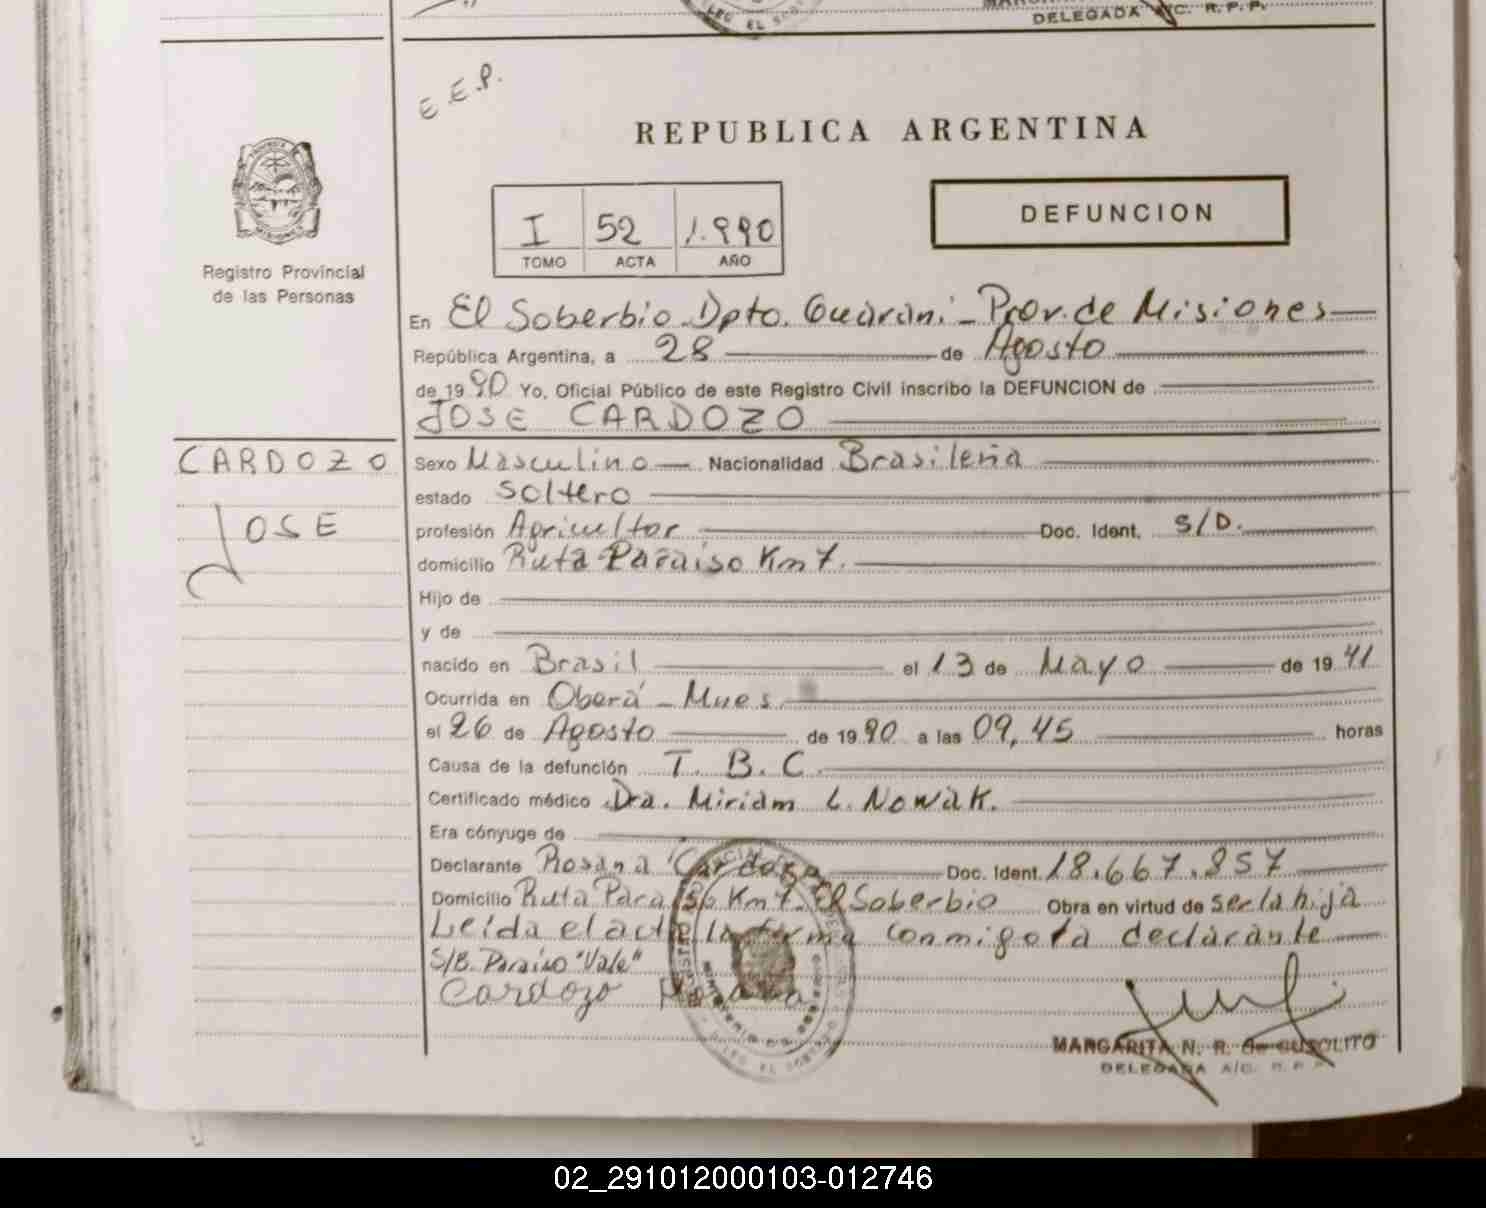 DELEGADA A/C. R.P.P.
E.E.P.
REPUBLICA ARGENTINA
I 52 1.990
TOMO ACTA AÑO
DEFUNCION
Registro Provincial
de las Personas
En El Soberbio Dpto. Guarani - Prov. de Misiones
República Argentina, a 28 de Agosto
de 19 90 Yo, Oficial Público de este Registro Civil inscribo la DEFUNCION de
JOSE CARDOZO
CARDOZO
JOSE
Sexo Masculino Nacionalidad Brasileña
estado Soltero
profesión Agricultor Doc. Ident. S/D.
domicilio Ruta Paraiso Km 7.
Hijo de
y de
nacido en Brasil el 13 de Mayo de 19 41
Ocurrida en Oberá - Mnes
el 26 de Agosto de 19 90 a las 09,45 horas
Causa de la defunción T. B. C.
Certificado médico Dra. Miriam L. Nowak.
Era cónyuge de
Declarante Rosana Cardozo Doc. Ident. 18.667.857
Domicilio Ruta Paraiso Km 7. El Soberbio Obra en virtud de ser la hija
Leída el acta la firma conmigo la declarante
S/B. Paraiso "Vale"
Cardozo Rosana
MARGARITA N. R. de CUSOLITO
DELEGADA A/C. R.P.P.
02_291012000103-012746